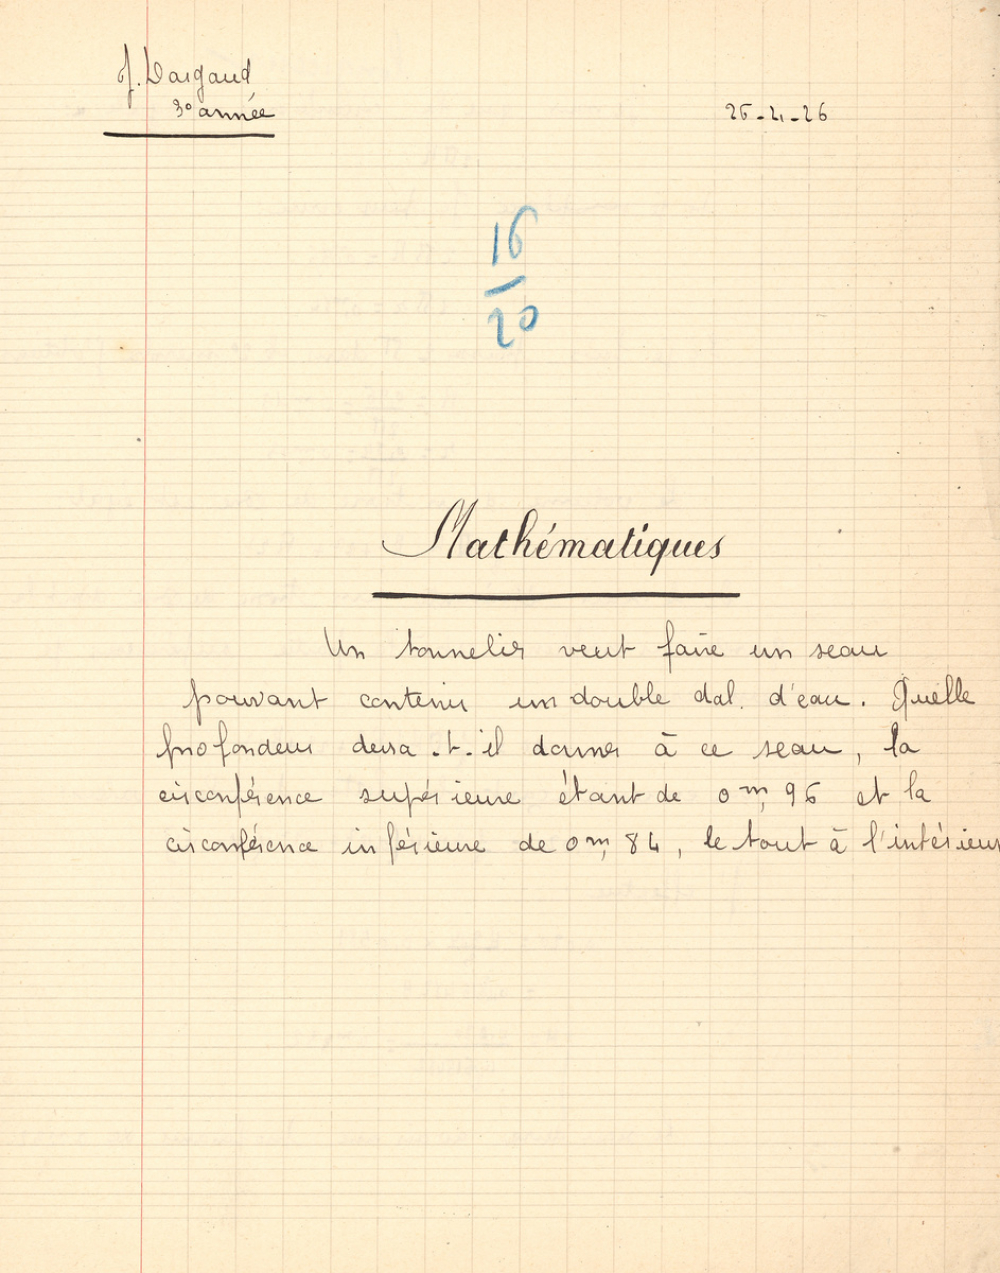 J. Dargaud
3e année
26-4-26
16
20
Mathématiques
Un tonnelier veut faire un seau
pouvant contenir un double dal. d'eau. Quelle
profondeur devra-t-il donner à ce seau, la
circonférence supérieure étant de 0m,96 et la
circonférence inférieure de 0m,84, le tout à l'intérieur